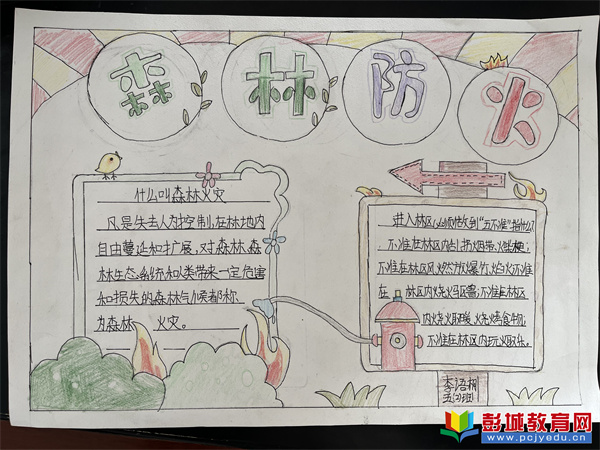 森林防火
什么叫森林火灾
凡是失去人为控制,在林地内
自由蔓延和扩展,对森林.森
林生态系统和人类带来一定危害
和损失的森林气候都称
为森林 火灾。
进入林区必须做到"五不准"指什么
不准在林区内乱扔烟蒂、火柴梗;
不准在林区风燃放爆竹、焰火不准
在 林区内烧火驱兽;不准在林区
内烧火取暖、火烧烤食物;
不准在林区内玩火取乐。
李语桐
五(2)班
彭城教育网
www.pcjyedu.cn